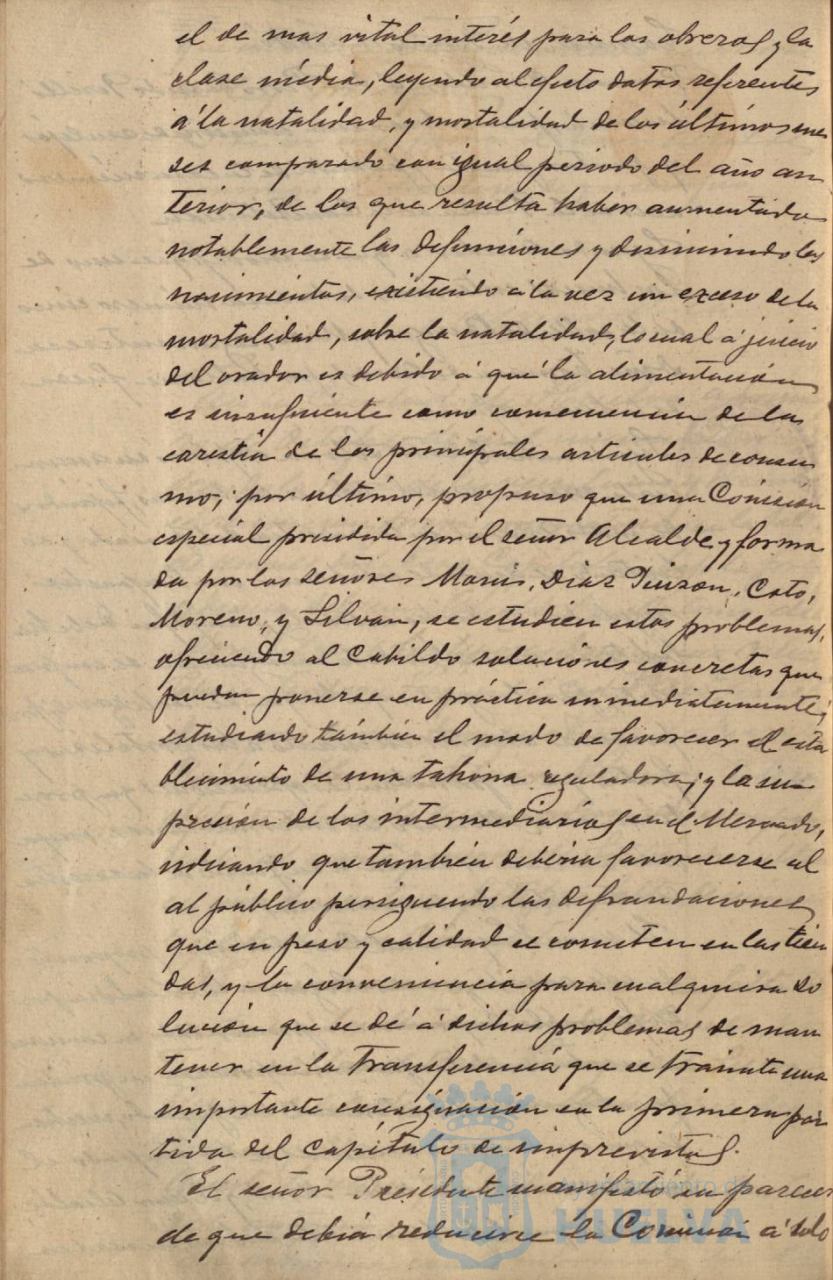 el de mas vital interés para los obreros y la
clase média, leyendo al efecto datos referentes
á la natalidad, y mortalidad de los últimos me
ses comparado con igual periodo del año an
terior, de los que resulta haber aumentado
notablemente las defunciones y disminuido los
nacimientos, existiendo á la vez un exceso de la
mortalidad, sobre la natalidad, lo cual á juicio
del orador es debido á qué la alimentación
es insuficiente como consecuencia de la
carestia de los principales articulos de consu
mo; por último, propuso que una Comisión
especial presidida por el señor Alcalde y forma
da por los señores Diaz Coto,
Moreno, y Silván, se estudien estos problemas,
ofreciendo al Cabildo soluciones concretas que
puedan ponerse en práctica inmediatamente;
estudiando también el modo de favorecer el esta
blecimiento de una tahona reguladora; y la su
presión de los intermediarios en el Mercado,
indicando que también deberia favorecerse al
al público persiguendo las defraudaciones
que en peso y calidad se cometen en las tien
das, y la conveniencia para cualquiera so
lución que se dé á dichos problemas de man
tener en la transferencia que se tramite una
importante consignación en la primera par
tida del capítulo de imprevistos.
El señor Presidente manifestó su parecer
de que debia reducirse la Comisión á solo
Ayuntamiento de
HUELVA